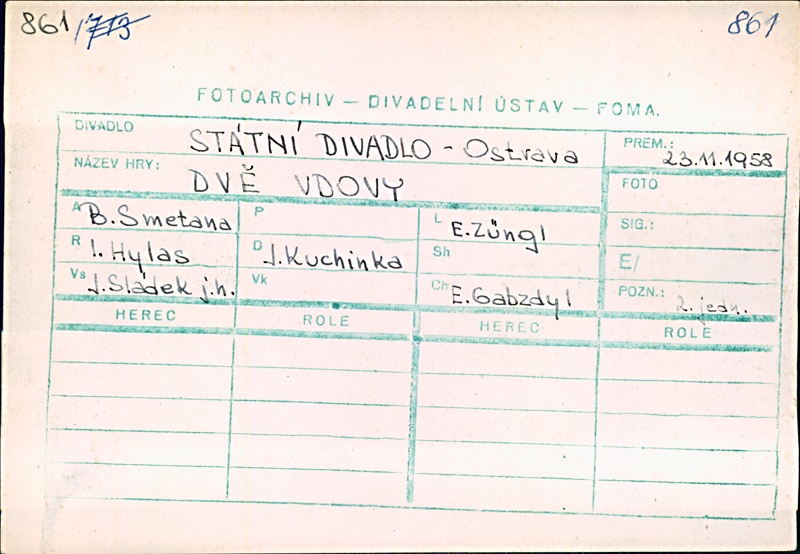 861/713 861
FOTOARCHIV — DIVADELNÍ ÚSTAV — FOMA.
DIVADLO STÁTNÍ DIVADLO - Ostrava PREM.: 23.11.1958
NÁZEV HRY: DVĚ VDOVY FOTO
A B. Smetana P L E. Züngl SIG.:
R I. Hylas D J. Kuchinka Sh E/
Vs J. Sládek j.h. Vk Ch E. Gabzdyl POZN.: 2. jedn.
HEREC ROLE HEREC ROLE